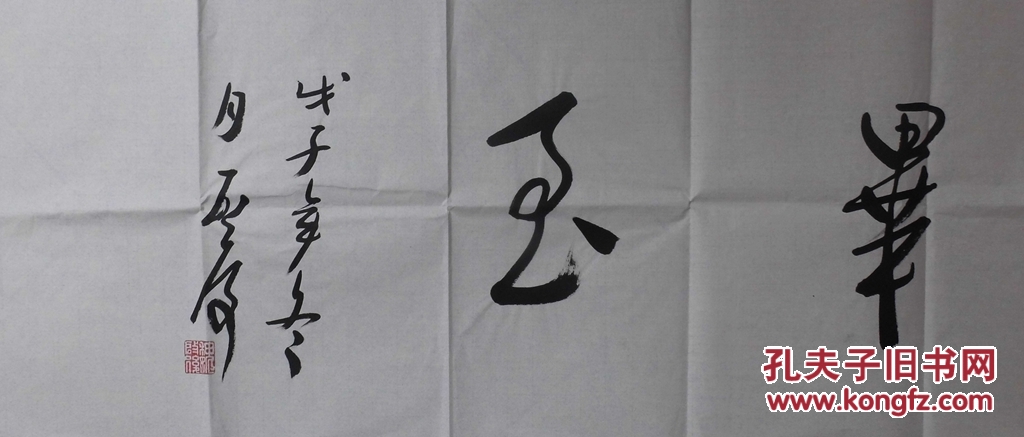 畢至
戊子年冬
月
孔夫子旧书网
www.kongfz.com